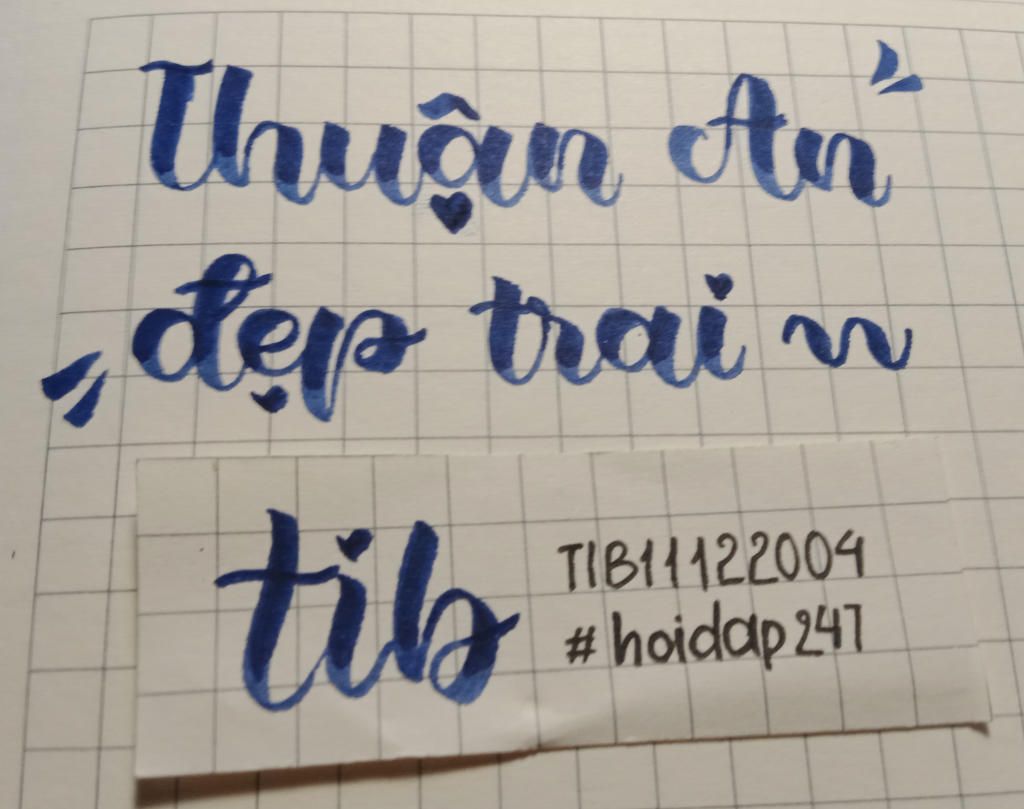 Thuận An
đẹp trai
tib
TIB11122004
#hoidap247